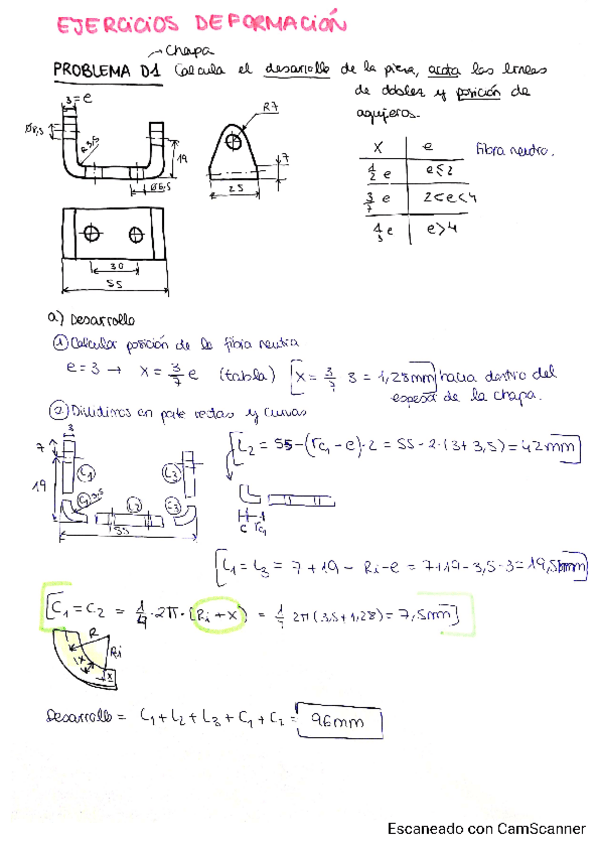 EJERCICIOS DEFORMACIÓN
Chapa
PROBLEMA D1 Calcula el desarrollo de la pieza, acota las líneas
de doblez y posición de
agujeros.
3=e
Ø6,5
R3,5
19
Ø6,5
R7
7
25
30
55
X e Fibra neutra.
1/2 e e≤2
3/7 e 2<e<4
1/3 e e>4
a) Desarrollo
① Calcular posición de la fibra neutra
e=3 → x = 3/7 e (tabla) [x = 3/7 3 = 1,28mm] hacia dentro del
espesor de la chapa.
② Dividimos en parte rectas y curvas
3
7
19
L1
L3
L2
55
[L2 = 55-(rc1-e)·2 = 55-2·(3+3,5) = 42mm]
C rc1
[L1 = L3 = 7+19-Ri-e = 7+19-3,5-3 = 19,5mm]
[C1 = C2 = 1/4 · 2π · (Ri+x) = 1/4 2π(3,5+1,28) = 7,5mm]
R
Ri
x
Desarrollo = L1+L2+L3+C1+C2 = 96mm
Escaneado con CamScanner